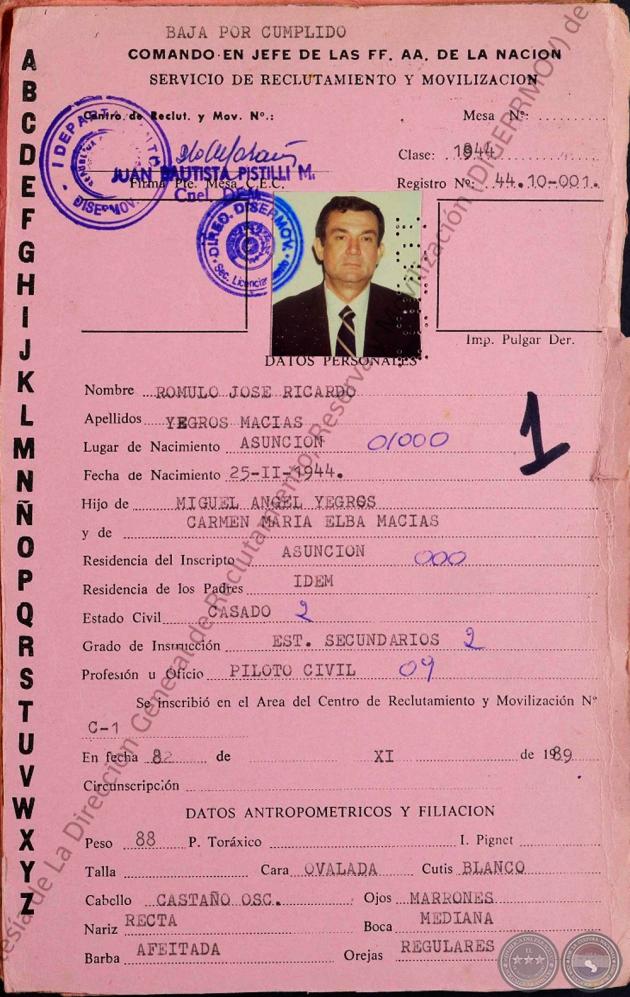 BAJA POR CUMPLIDO
COMANDO EN JEFE DE LAS FF. AA. DE LA NACION
SERVICIO DE RECLUTAMIENTO Y MOVILIZACION
Centro de Reclut. y Mov. Nº.:
Mesa Nº:
Clase: 1944
JUAN BAUTISTA PISTILLI M.
Firma Pte. Mesa C.E.C.
Registro Nº: 44.10-001.
Cnel.
DISERMOV.
DIREC. DISERMOV.
Imp. Pulgar Der.
DATOS PERSONALES
Nombre ROMULO JOSE RICARDO
Apellidos YEGROS MACIAS
1
Lugar de Nacimiento ASUNCION 01000
Fecha de Nacimiento 25-II-1944.
Hijo de MIGUEL ANGEL YEGROS
y de CARMEN MARIA ELBA MACIAS
Residencia del Inscripto ASUNCION 000
Residencia de los Padres IDEM
Estado Civil CASADO 2
Grado de Instrucción EST. SECUNDARIOS 2
Profesión u Oficio PILOTO CIVIL 09
Se inscribió en el Area del Centro de Reclutamiento y Movilización Nº
C-1
En fecha 82 de XI de 1989
Circunscripción
DATOS ANTROPOMETRICOS Y FILIACION
Peso 88 P. Toráxico I. Pignet
Talla Cara OVALADA Cutis BLANCO
Cabello CASTAÑO OSC. Ojos MARRONES
Nariz RECTA Boca MEDIANA
Barba AFEITADA Orejas REGULARES
A
B
C
D
E
F
G
H
I
J
K
L
M
N
Ñ
O
P
Q
R
S
T
U
V
W
X
Y
Z
esía de La Dirección General de Reclutamiento, Reserva y Movilización (DIGERRMOV) de